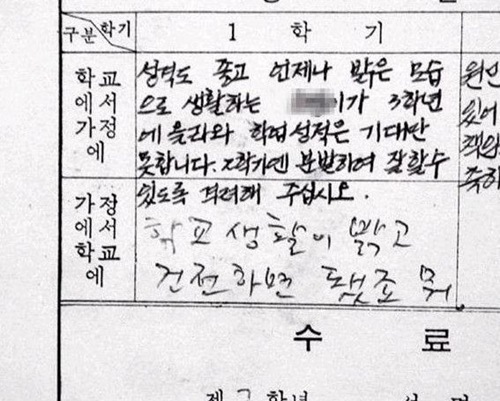 구분 학기 1 학 기
학교에서 가정에
성적도 좋고 언제나 밝은 모습
으로 생활하는 이가 3학년
에 올라와 학업성적은 기대만
못합니다. 2학기엔 분발하여 잘할수
있도록 격려해 주십시오.
가정에서 학교에
학교생활이 밝고
건전하면 됐죠 뭐
원인
있어
수 료